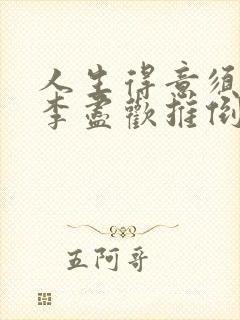 人生得意须
李尽欢推倒
五阿哥